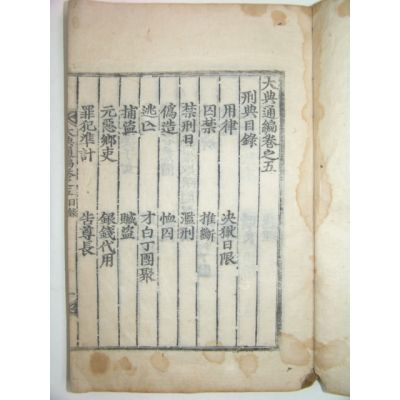 大典通編卷之五
刑典目錄
用律 决獄日限
囚禁 推斷
禁刑日 濫刑
僞造 恤囚
逃亡 才白丁團聚
捕盜 贓盜
元惡鄕吏 銀錢代用
罪犯準計 告尊長